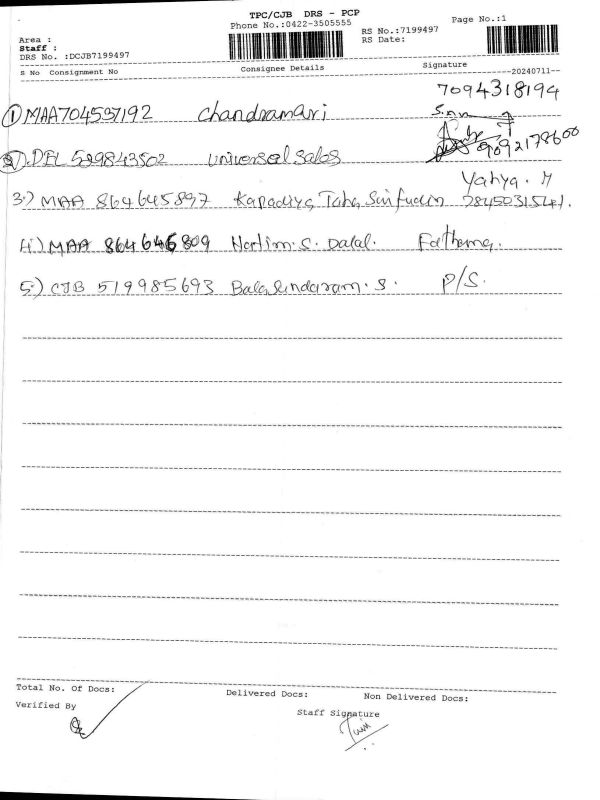 TPC/CJB DRS - PCP
Phone No.:0422-3505555
Page No.:1
Area :
Staff :
DRS No. :DCJB7199497
RS No.:7199497
RS Date:
S No Consignment No Consignee Details Signature
20240711
7094318194
1 MAA704557192 Chandramari
2) DEL 529843502 Universal Sales 9092179600
3.) MAA 864645897 Kapadiya Taha Saifudin Yahya. M
4.) MAA 864646809 Hatim. S. Dalal. Fathema.
5.) CJB 519985693 Balasundaram. S. P/S.
Total No. Of Docs: Delivered Docs: Non Delivered Docs:
Verified By
Staff Signature